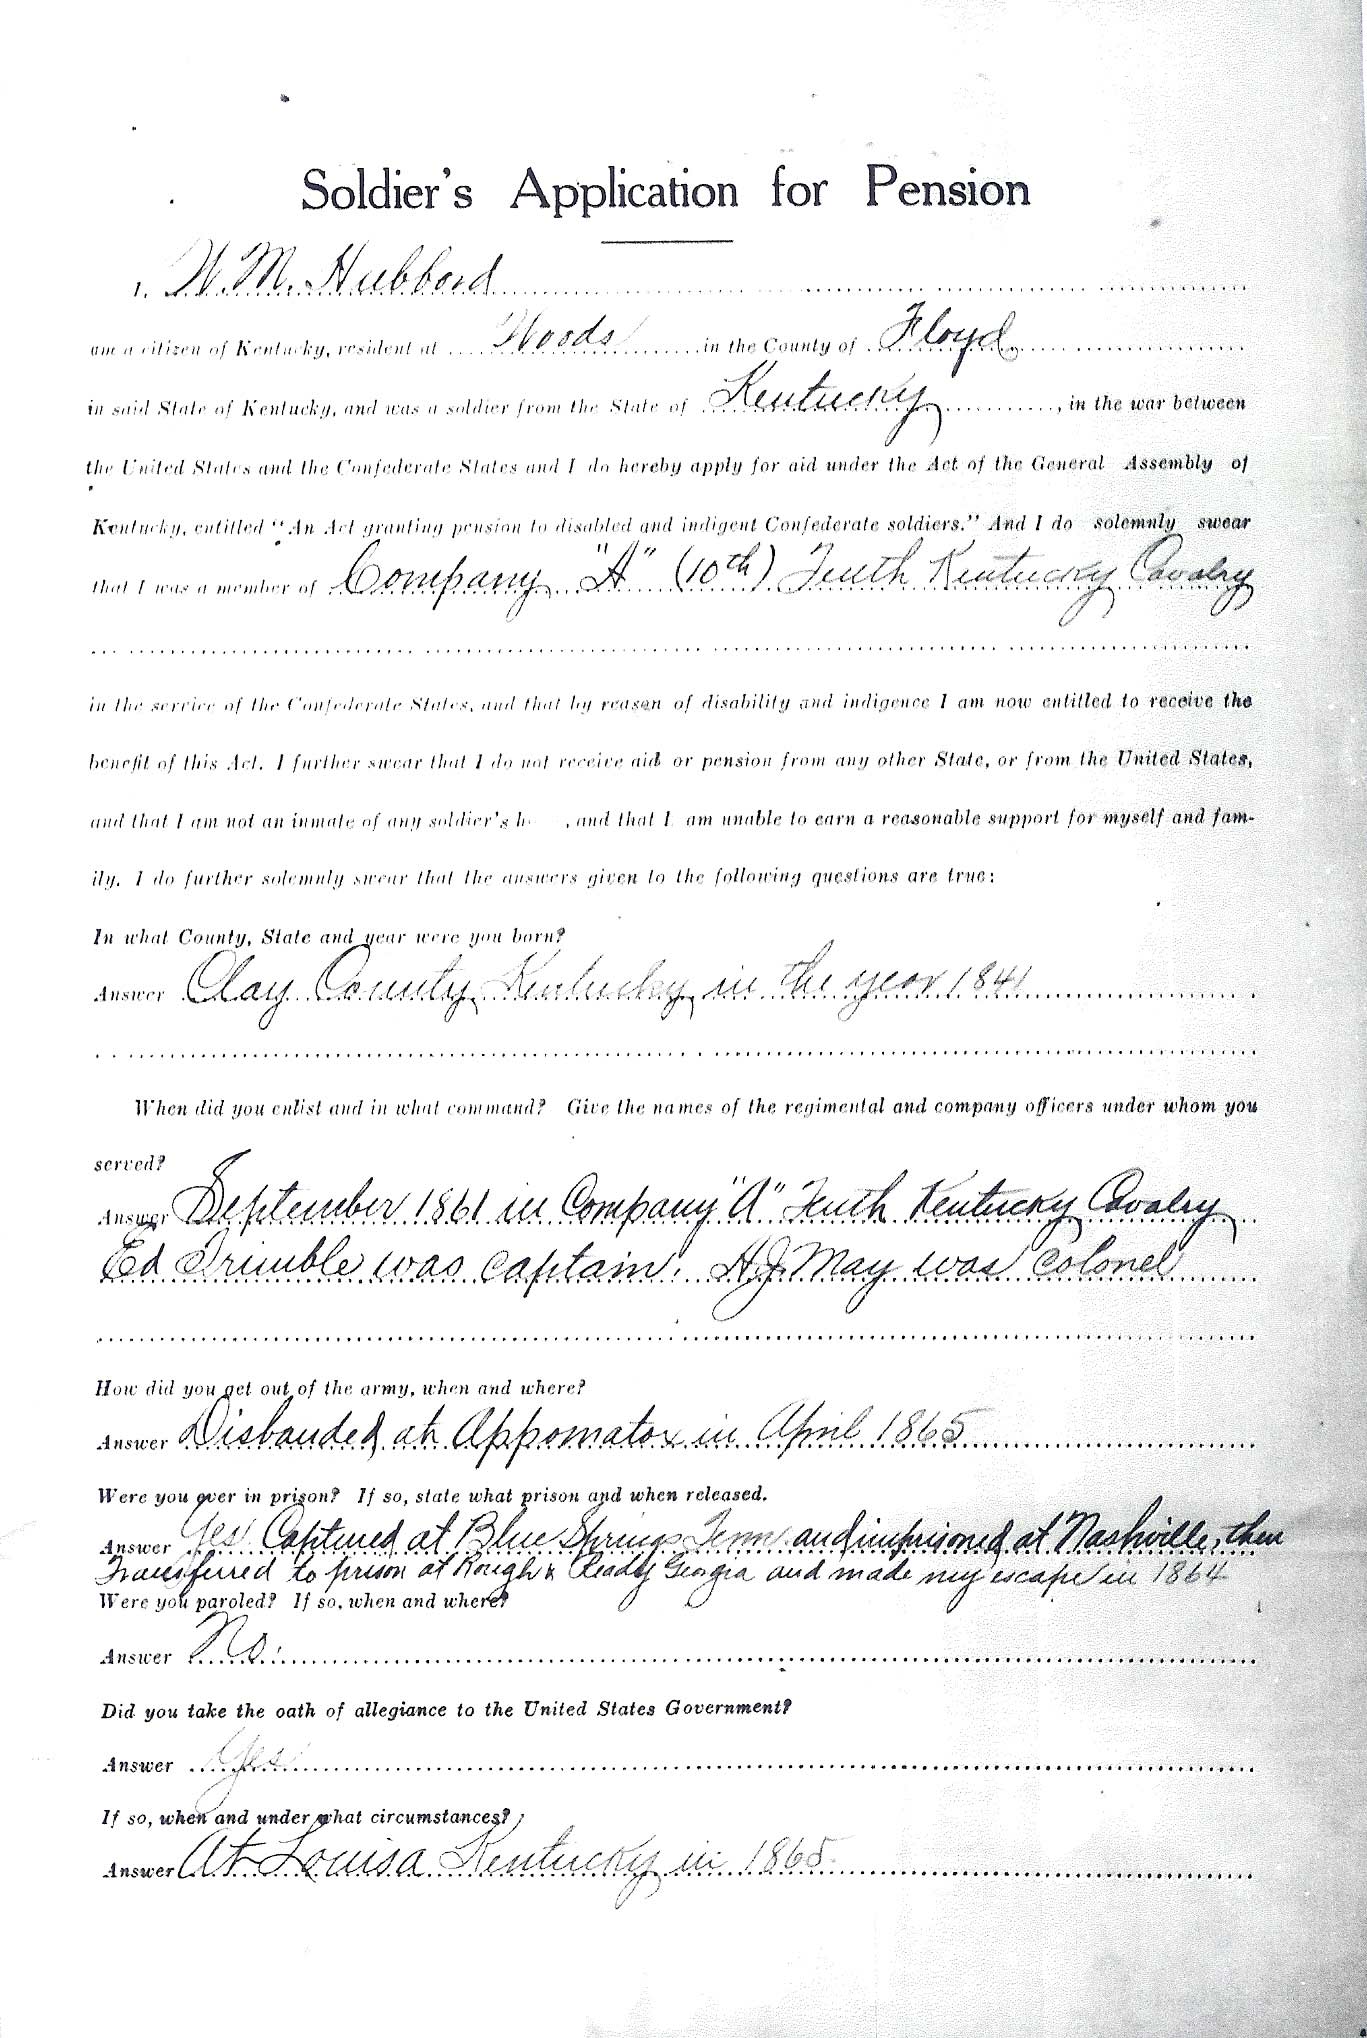 Soldier's Application for Pension
I, W. M. Hubbard
am a citizen of Kentucky, resident at Woods in the County of Floyd
in said State of Kentucky, and was a soldier from the State of Kentucky, in the war between
the United States and the Confederate States and I do hereby apply for aid under the Act of the General Assembly of
Kentucky, entitled "An Act granting pension to disabled and indigent Confederate soldiers." And I do solemnly swear
that I was a member of Company "A" (10th) Tenth Kentucky Cavalry
in the service of the Confederate States, and that by reason of disability and indigence I am now entitled to receive the
benefit of this Act. I further swear that I do not receive aid or pension from any other State, or from the United States,
and that I am not an inmate of any soldier's h , and that I am unable to earn a reasonable support for myself and fam-
ily. I do further solemnly swear that the answers given to the following questions are true:
In what County, State and year were you born?
Answer Clay County Kentucky in the year 1841
When did you enlist and in what command? Give the names of the regimental and company officers under whom you
served?
Answer September 1861 in Company "A" Tenth Kentucky Cavalry
Ed Trimble was captain. H.J. May was Colonel
How did you get out of the army, when and where?
Answer Disbanded at Appomatox in April 1865
Were you ever in prison? If so, state what prison and when released.
Answer Yes Captured at Blue Springs Tenn and imprisoned at Nashville, then
Transferred to prison at Rough & Ready Georgia and made my escape in 1864
Were you paroled? If so, when and where?
Answer No.
Did you take the oath of allegiance to the United States Government?
Answer Yes
If so, when and under what circumstances?
Answer At Louisa Kentucky in 1865